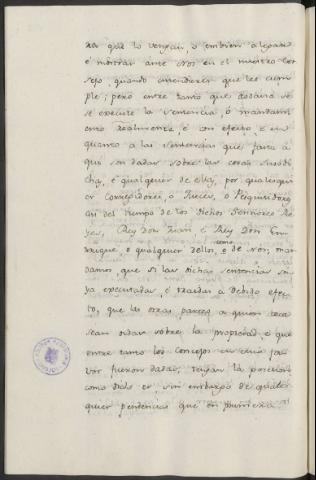 ner que lo vengan, o embien alegar
é mostrar ante Nos en el nuestro Con
sejo, quando entendieren que les cum
ple; pero entre tanto que todavia se
se execute la sentencia, ó mandam.
ento realmente é con efecto, é en
quanto a las sentencias que fasta a
qui son dadas sobre las cosas susodi
chas, é qualquier de ellas, por qualesqui
er Corregidores, o Jueces, o Pesquisidores
asi del tiempo de los dichos Señores Re
yes, Rey Don Juan é Rey Don En
rrique, o qualquer dellos, como de Nos; man
damos, que si las dichas sentencias son
ya executadas, é traidas a debido efec
to, que las otras partes a quien toca
sean oidas sobre la propiedad, é que
entre tanto los Concejos en cuio fa
vor fueron dadas, tengan la posesion
como dicho es, sin embargo de quales
quier pendencias que en primera